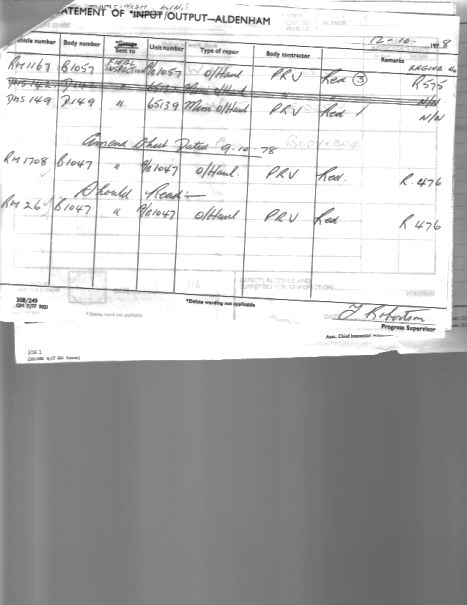 STATEMENT OF *INPUT/OUTPUT—ALDENHAM
12-10- 1978
Vehicle number Body number *Garage Sent to Unit number Type of repair Body contractor Remarks ENGINE No
RM1167 B1057 FINAL INSPECTION B1057 O/Haul PRV Red 3 R575
DMS 142 D142 " 65137 Mini O/Haul " N/N
DMS 149 D149 " 65139 Mini O/Haul PRV Red 1 N/N
Amend Sheet Dated 9.10.78
RM1708 B1047 " B1047 O/Haul PRV Red. R.476
Should Read:-
RM 26 B1047 " B1047 O/Haul PRV Red R 476
308/249
*Delete wording not applicable
Progress Supervisor
Asst. Chief Inspector
308/2